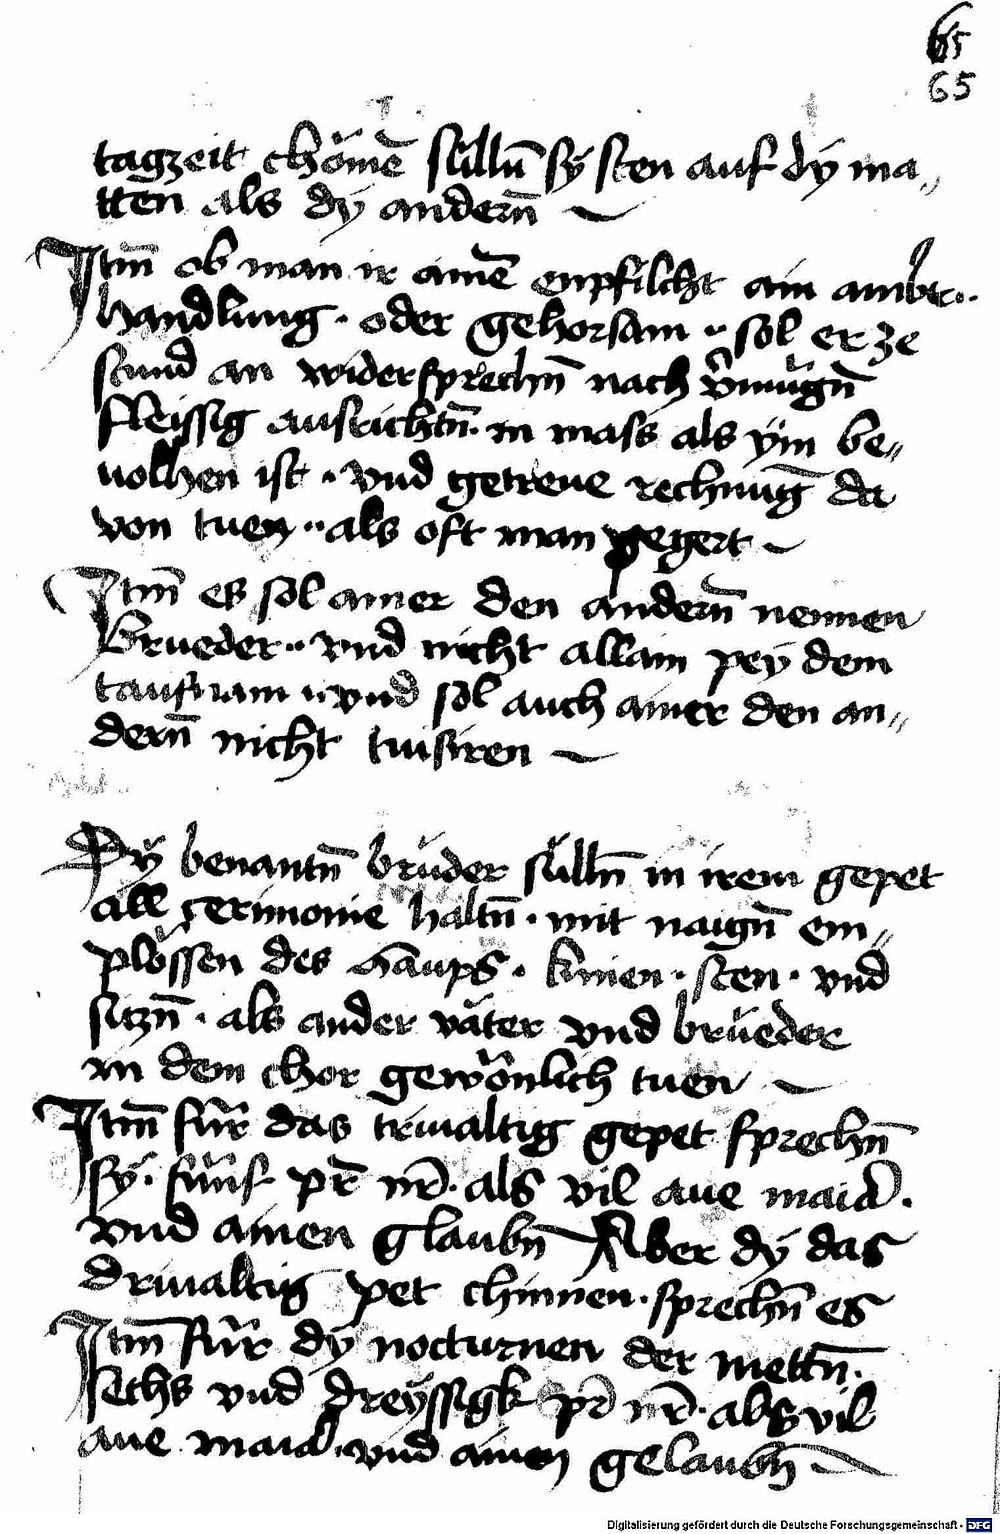 65
65
tagzeit chömē sülln̄ sÿ sten auf dÿ ma〃
ttēn als dÿ andern̄
Itm̄ ob man ir ainē enpfilcht ain ambt
handlung · oder gehorsam · sol er ze
stund an widersprechn̄ nach v̄mugn̄
fleissig ausrichtn̄ · in mass als ÿm be〃
uolhen ist · vnd getreue rechnūg da
von tuen · als oft man gegert
Itm̄ es sol ainer den andern̄ nennen
Brueder · vnd nicht allain peÿ dem
taufnam · vnd sol auch ainer den an〃
dern̄ nicht tuisiren
Dÿ benantn̄ brüder sülln̄ in irem gepet
all cerimonie haltn̄ · mit naign̄ em〃
plössen des haups · knien · sten · vnd
sitzn̄ · als ander väter vnd brüeder
in dem chor gewönlich tuen
Itm̄ für das triualtig gepet sprechn̄
sÿ · fünf pr̄ nr̄ · als vil aue maia ·
vnd ainen glaubn̄ Aber dÿ das
driualtig pet chinnen · sprechn̄ es
Itm̄ für dÿ nocturnen der mettn̄ ·
sechs vnd dreÿssigk pr̄ nr̄ · als vil
aue maia · vnd ainen gelaubn̄
Digitalisierung gefördert durch die Deutsche Forschungsgemeinschaft - DFG